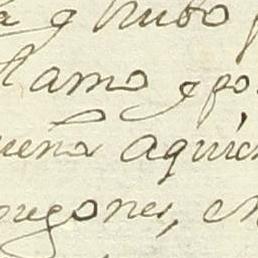 q hubo
llamo y po
uena aquien
pregones,